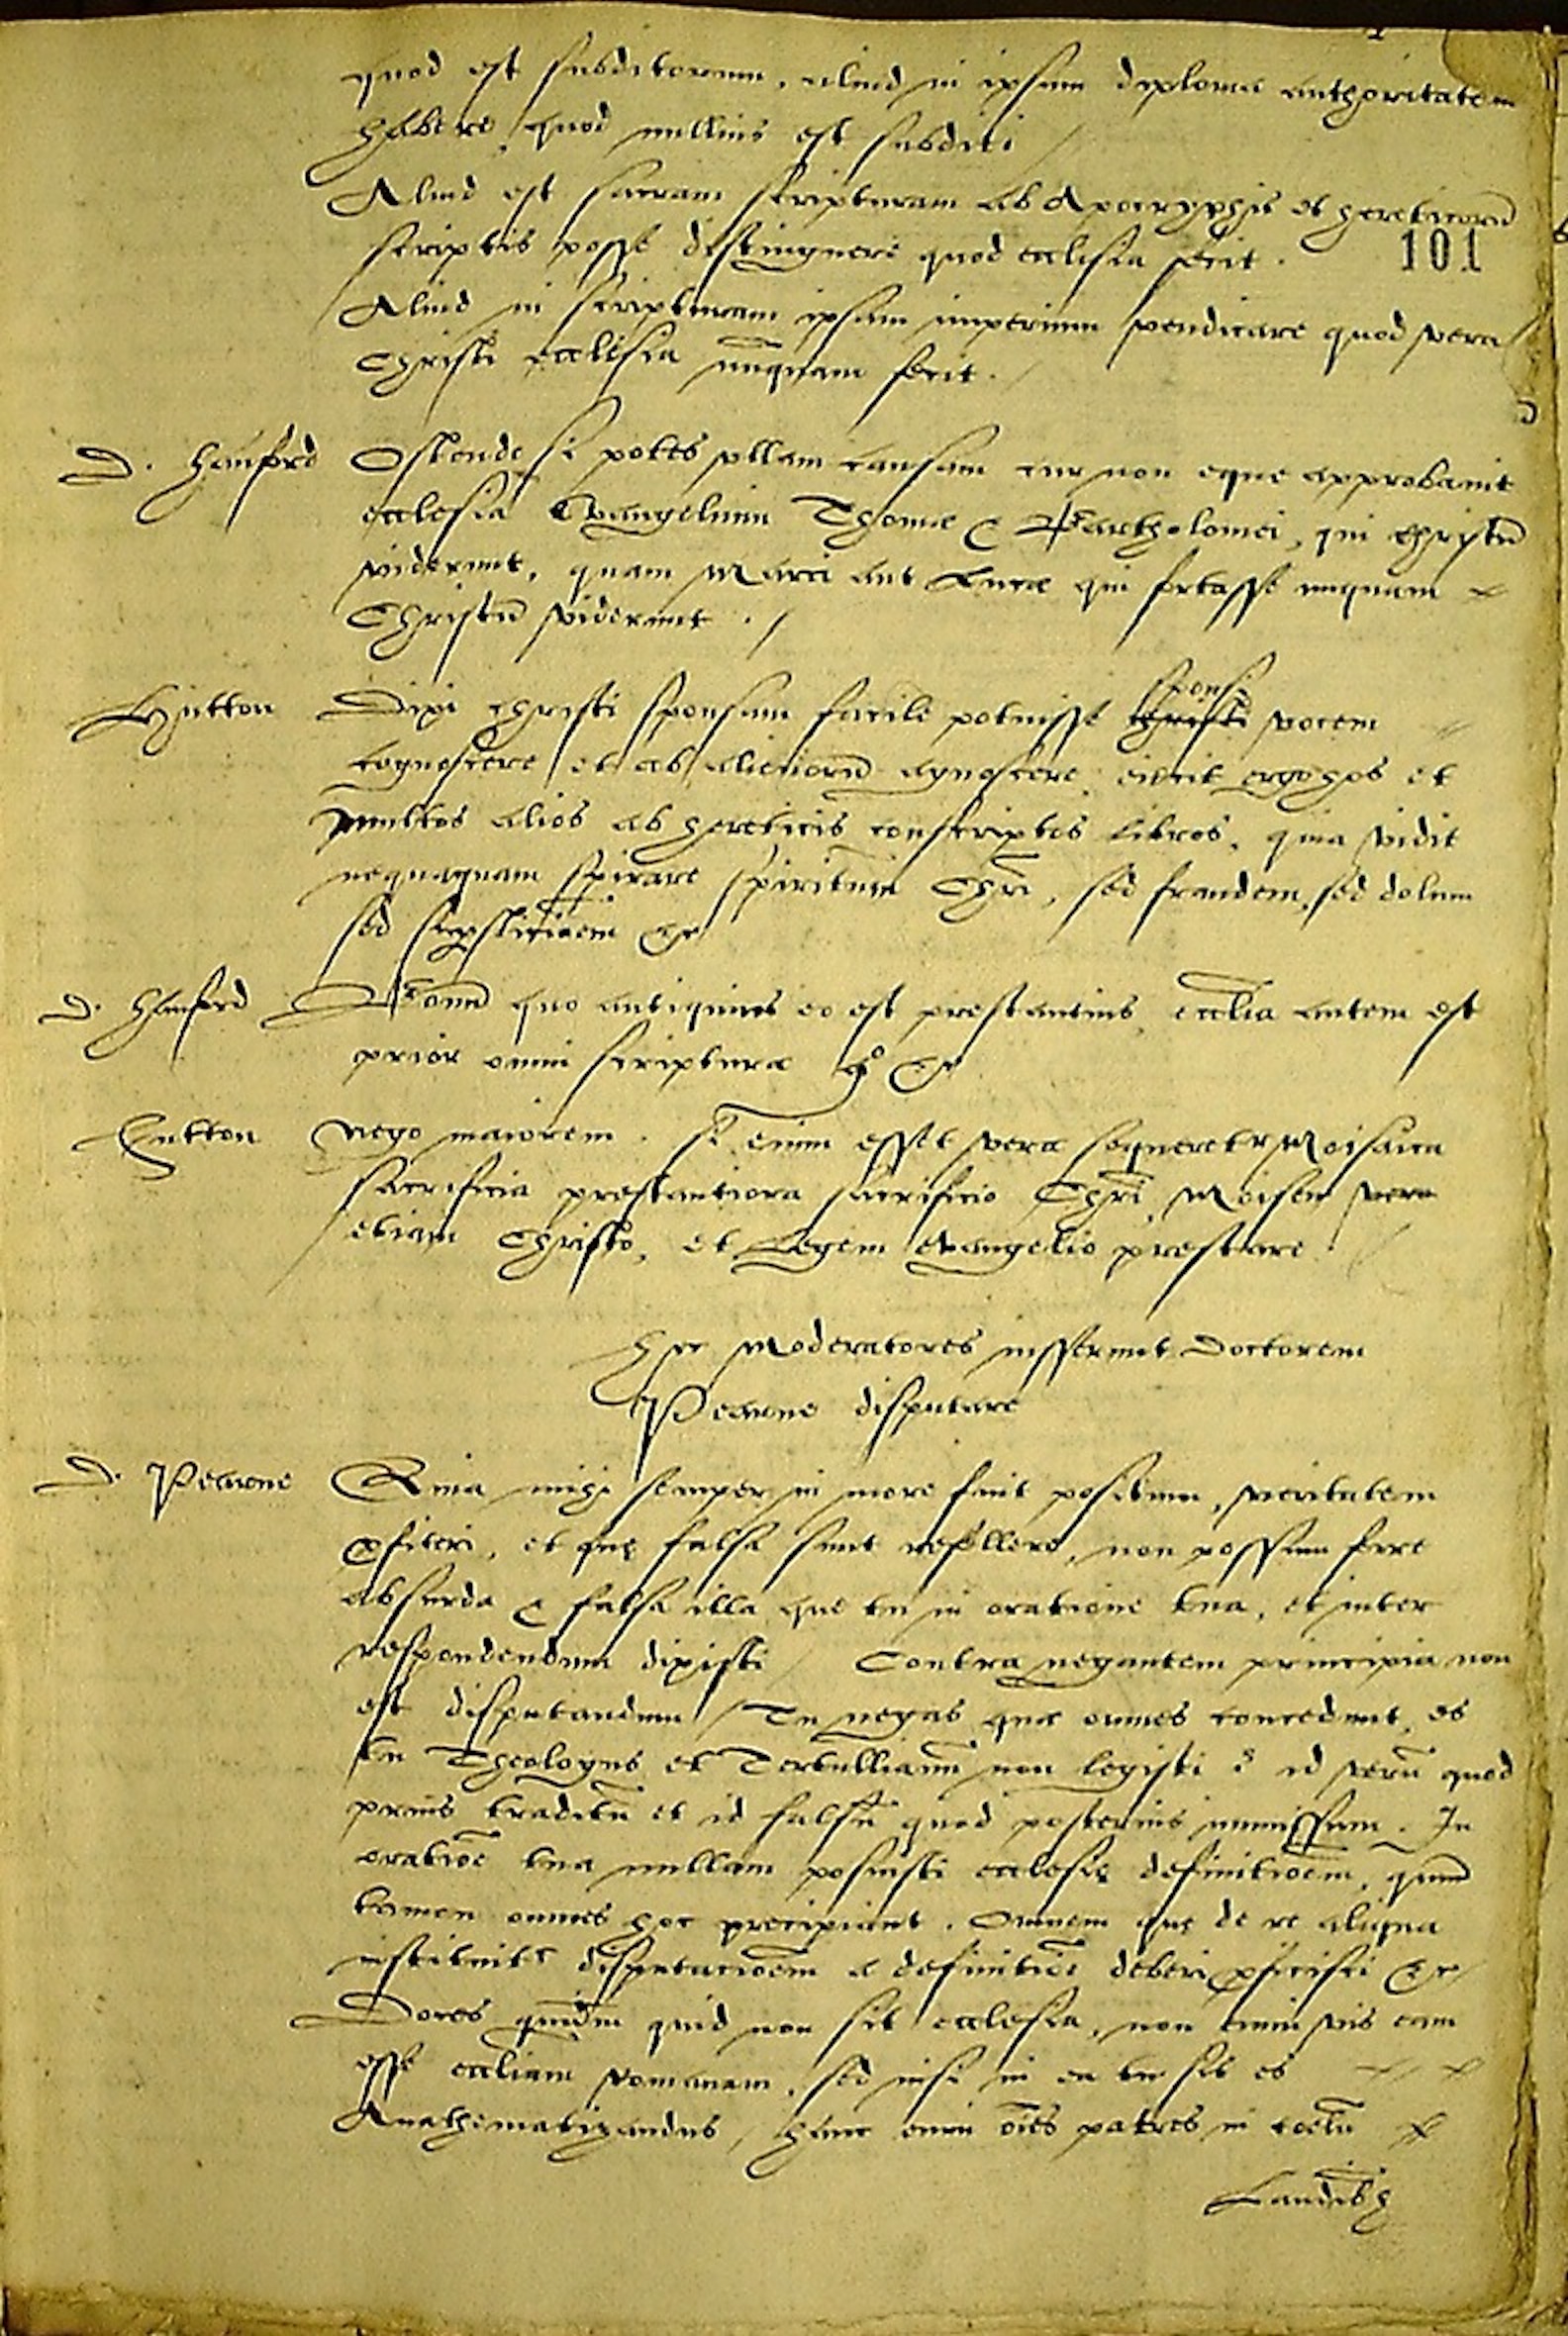 quod est subditorum, aliud in ipsum diploma authoritatem
habere, quod nullius est subditi /
Aliud est sacram scripturam ab Apocryphis et hereticorū
scriptis posse distinguere quod ecclesia fecit.
101
Aliud in scripturam ipsam imperium vendicare quod vera
Christi ecclesia nūquam fecit.
D. Hanford Ostende si potes vllam causam cur non eque approbauit
ecclesia Evangelium Thomæ & Bartholomei, qui Christū
viderunt, quam Marci aut Lucæ qui fortasse nunquam
Christū viderunt ./
Hutton Dixi Christi sponsam facile potuisse sponsi Christi vocem
cognoscere et ab alienorū agnoscere, eiecit ergo hos et
multos alios ab hereticis conscriptos libros, quia vidit
nequaquam spirare spiritum Chri̅, sed fraudem, sed dolum
sed sup̱stitiōem &c
D. Hanford Bonū quo antiquius eo est prestantius, ecclia autem est
prior omni scriptura gͦ &c
Hutton Nego maiorem. si enim esset vera sequeretʳ Moisaica
sacrificia prestantiora sacrificio Chri̅, Moisen vero
etiam Christo, et Legem evangelio prestare.
Hic Moderatores iusserunt Doctorem
Pearne disputare
D. Pearne Quia mihi semper in more fuit positum, veritatem
ꝓfiteri, et quę falsa sunt refellere, non possum ferre
absurda & falsa illa que tu in oratione tua, et inter
respondendum dixisti / Contra negantem principia non
est disputandum / Tu negas quæ omnes concedunt, es
tu Theologus et Tertullianū non legisti? id verū quod
prius traditū et id falsū quod posterius immissum. In
oratiōe tua nullam posuisti ecclesię definitiōem, quum
tamen omnes hoc precipiant. Omnem quę de re aliqua
instituitʳ disputatiōem a definitiōe deberi ꝓficisci &c
Doces quidem quid non sit ecclesia, non enim vis eam
esse eccliam romanam, sed nisi in ea tu sis es
Anathematizandus, hanc enim ōēs patres in coelū
Laudib